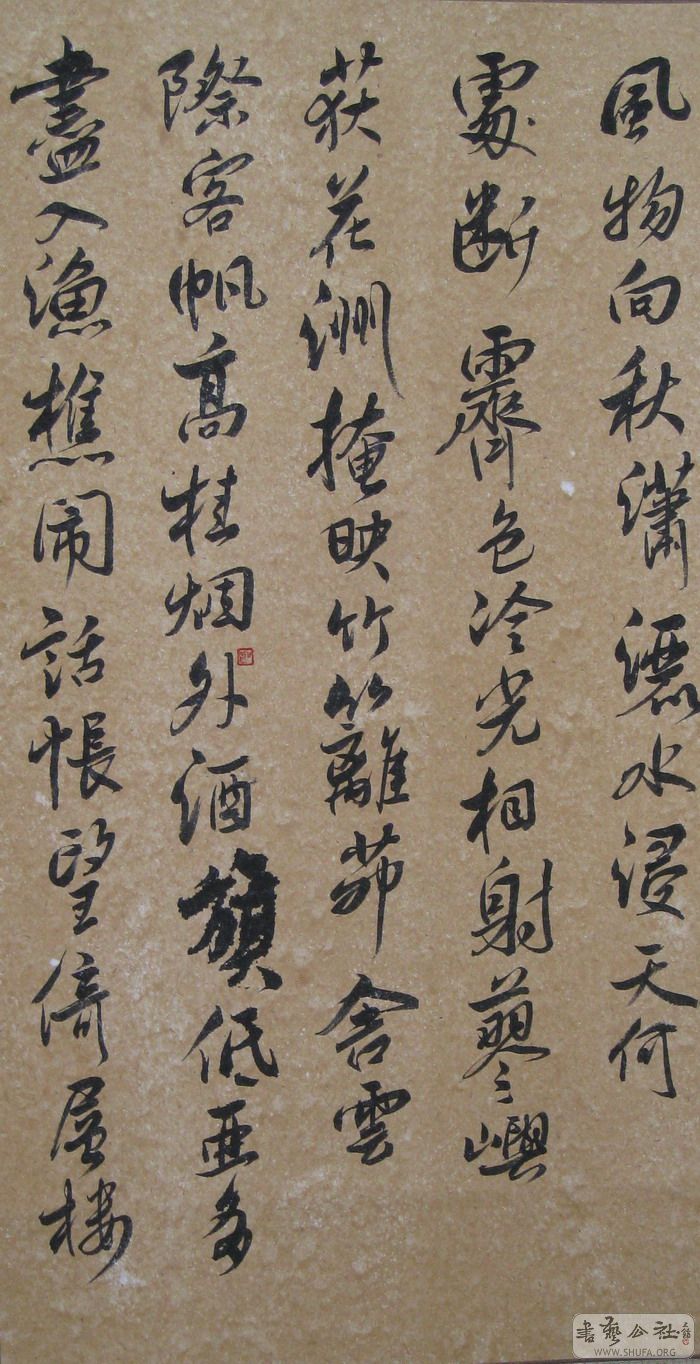 風物向秋瀟灑水浸天何
處断霽色冷光相射蓼嶼
荻花洲掩映竹籬茆舍雲
際客帆高挂烟外酒旗低亞多
盡入漁樵闹話悵望倚層樓
書藝公社
WWW.SHUFA.ORG